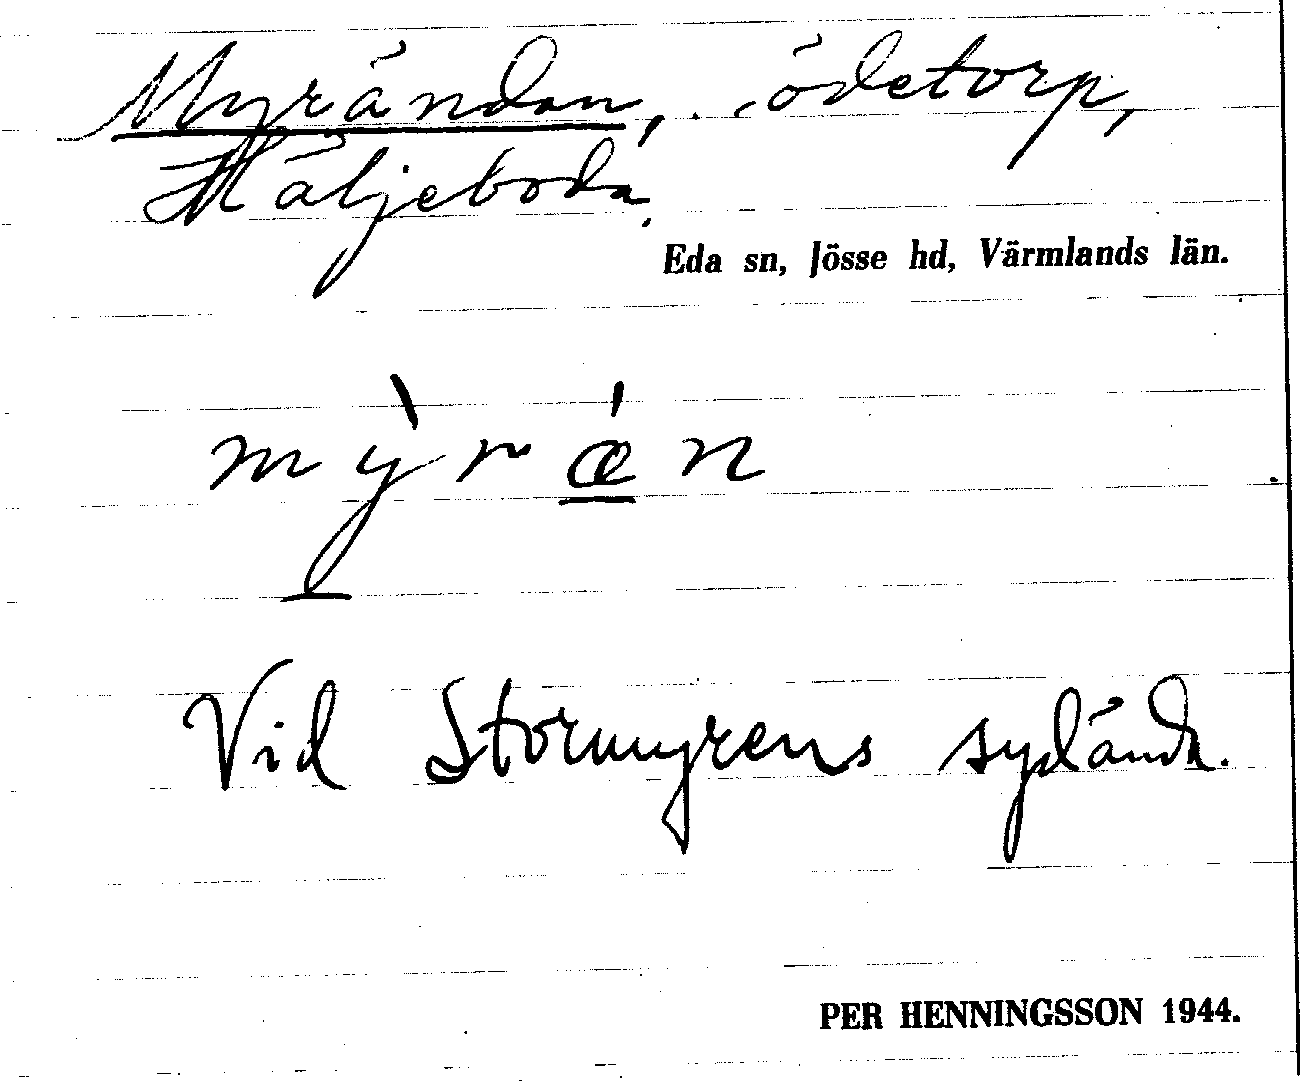 Myrändan, ödetorp,
Häljeboda.
Eda sn, Jösse hd, Värmlands län.
mỳrǽn
Vid Stormyrens sydända.
PER HENNINGSSON 1944.